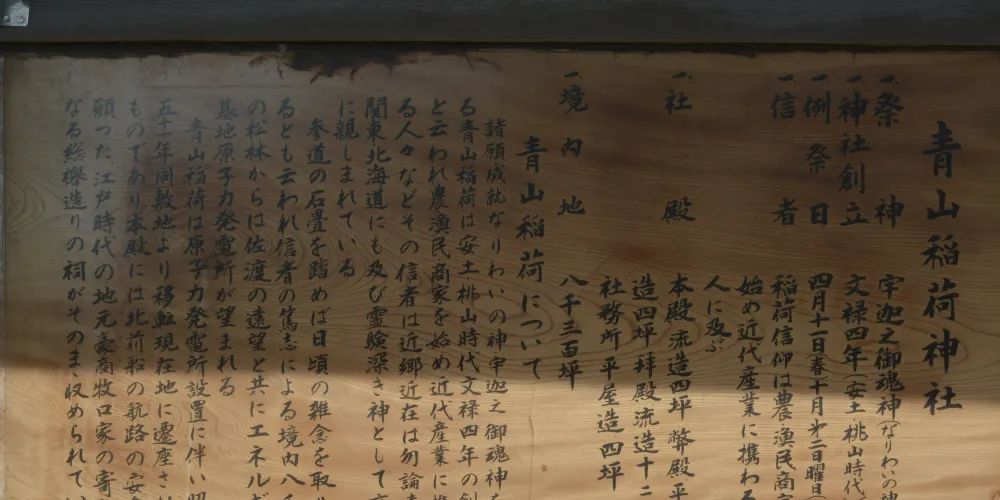 青山稲荷神社
一、祭神 宇迦之御魂神(なりわいの神
一、神社創立 文禄四年(安土桃山時代
一、例祭日 四月十一日(春)十月第二日曜日(
一、信者 稲荷信仰は農漁民商
始め近代産業に携わる
人に及ぶ
一、社殿 本殿流造四坪 幣殿平
造四坪拝殿流造十二
社務所平屋造四坪
一、境内地 八千三百坪
青山稲荷について
諸願成就なりわいの神宇迦之御魂神を
る青山稲荷は安土桃山時代文禄四年の創
と云われ農漁民商家を始め近代産業に携
る人々などその信者は近郷近在は勿論
関東北海道にも及び霊験深き神として
に親しまれている
参道の石畳を踏めば日頃の雑念を取
るとも云われ信者の篤志による境内八
の松林からは佐渡の遠望と共にエネルギ
基地原子力発電所が望まれる
青山稲荷は原子力発電所設置に伴い昭
五十一年同敷地より移転現在地に遷座さ
ものであり本殿には北前船の航路の安
願った江戸時代の地元豪商牧口家の寄
なる総欅造りの祠がそのまゝ収められてい